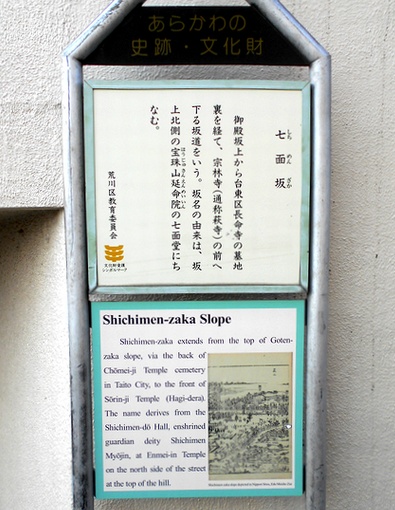 あらかわの
史跡・文化財
七面坂
しち めん ざか
御殿坂上から台東区長命寺の墓地
裏を経て、宗林寺(通称萩寺)の前へ
下る坂道をいう。坂名の由来は、坂
上北側の宝珠山延命院の七面堂にち
ほうじゅさんえんめいいん
なむ。
荒川区教育委員会
文化財愛護
シンボルマーク
Shichimen-zaka Slope
Shichimen-zaka extends from the top of Goten-
zaka slope, via the back of
Chōmei-ji Temple cemetery
in Taito City, to the front of
Sōrin-ji Temple (Hagi-dera).
The name derives from the
Shichimen-dō Hall, enshrined
guardian deity Shichimen
Myōjin, at Enmei-in Temple
on the north side of the street
at the top of the hill.